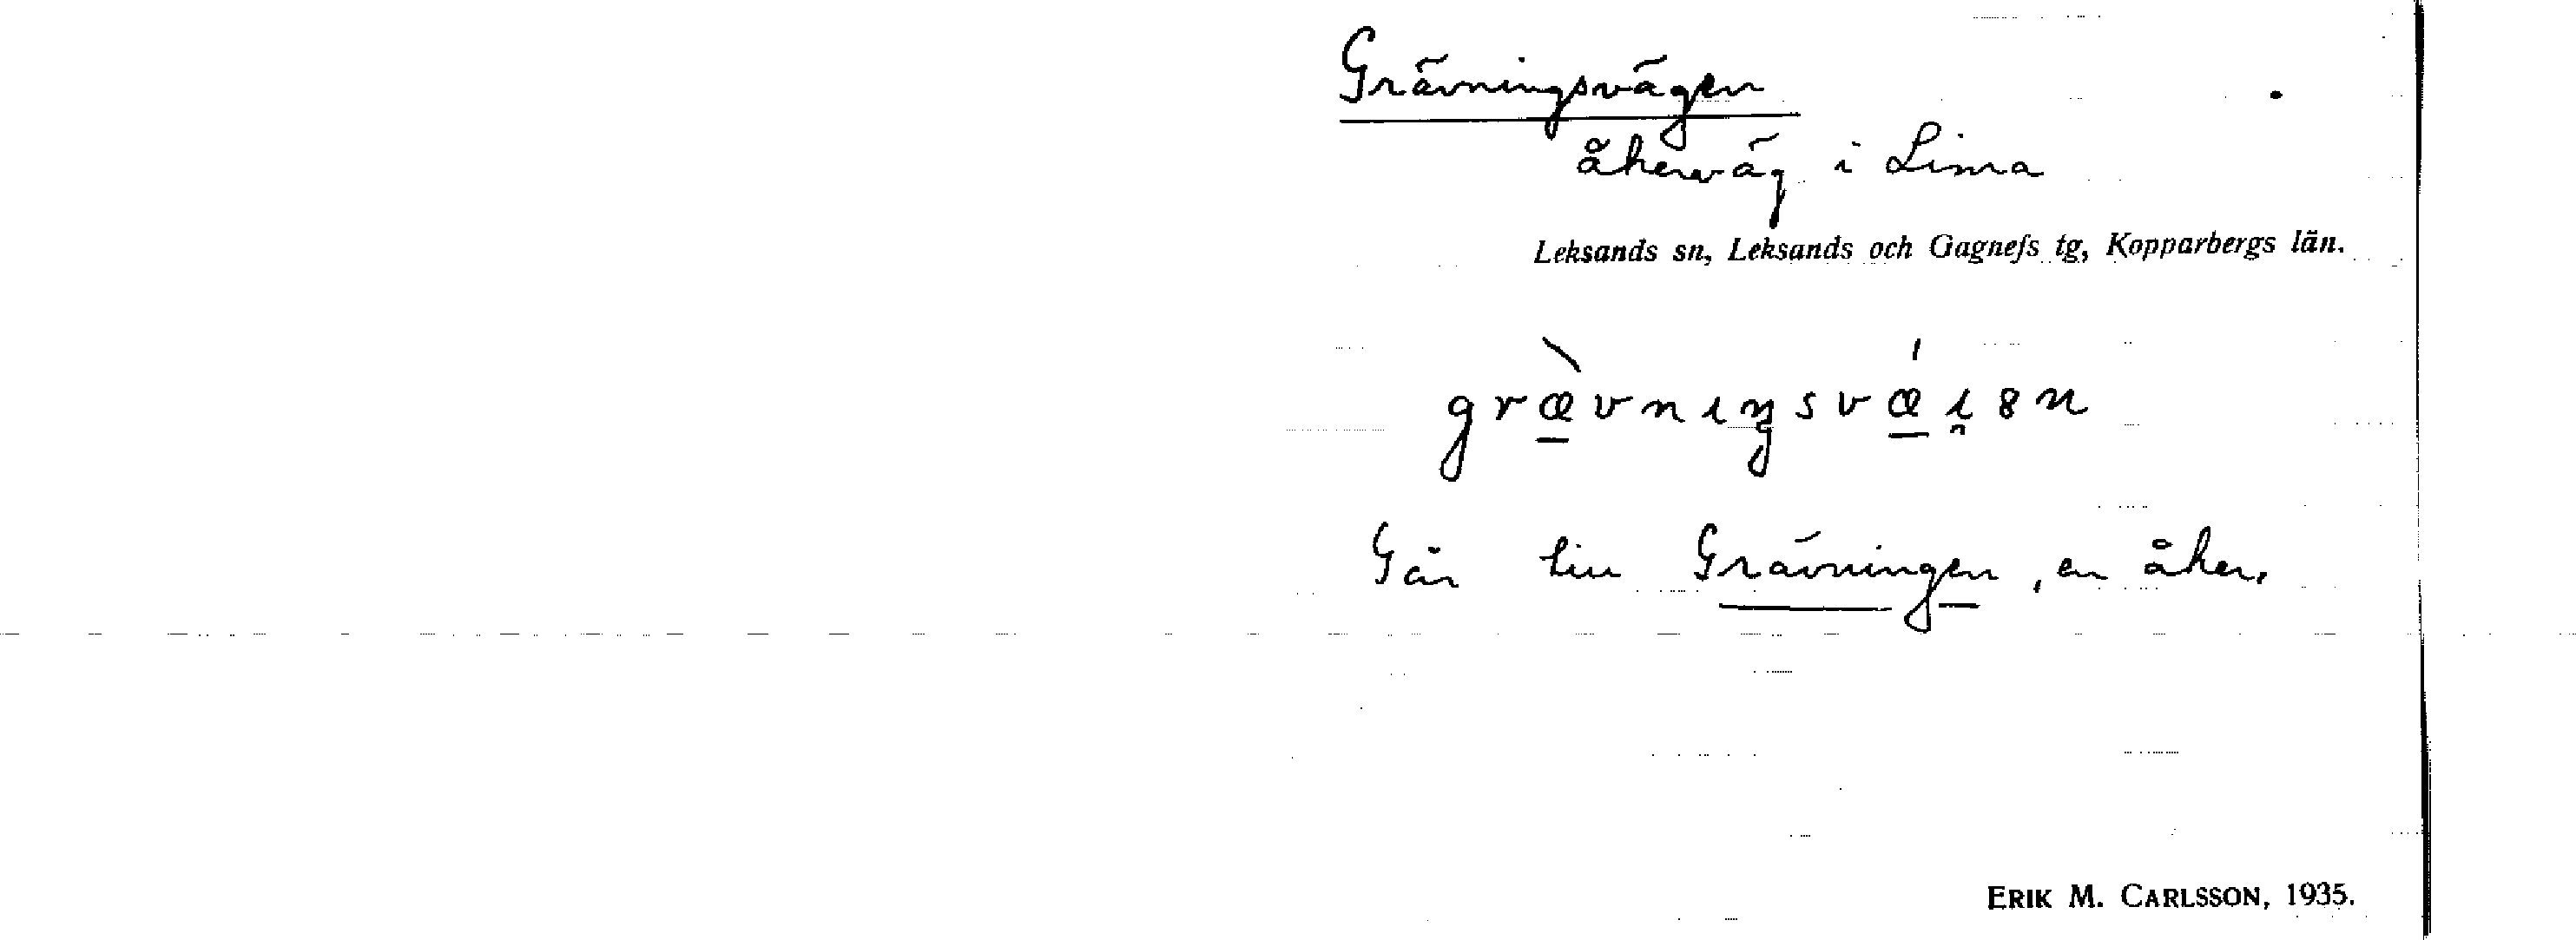 Grävningsvägen
åkerväg i Lima
Leksands sn, Leksands och Gagnefs tg, Kopparbergs län.
grævnıŋsvæi̯ən
Går till Grävningen, en åker.
ERIK M. CARLSSON, 1935.